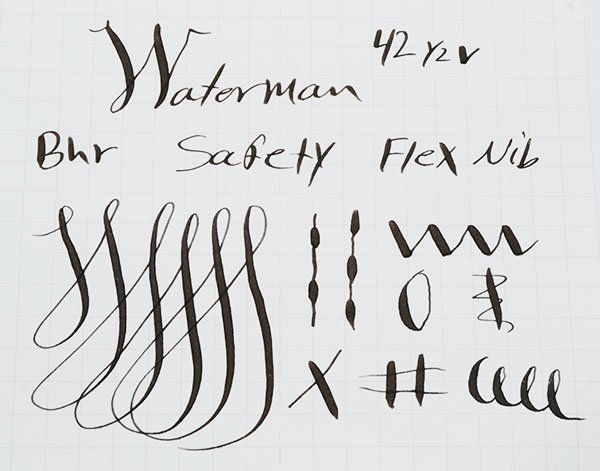 Waterman 42 1/2 v
Bhr Safety Flex Nib